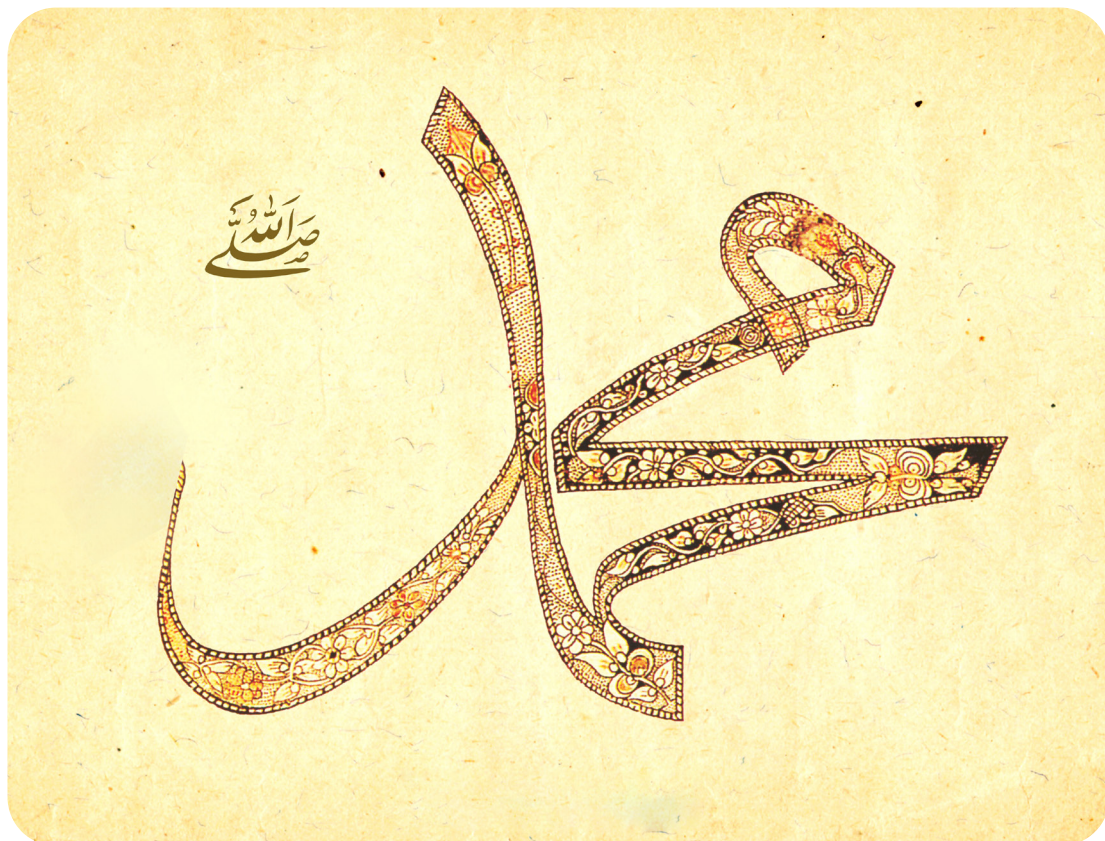 محمد
صَلَّى اللَّه